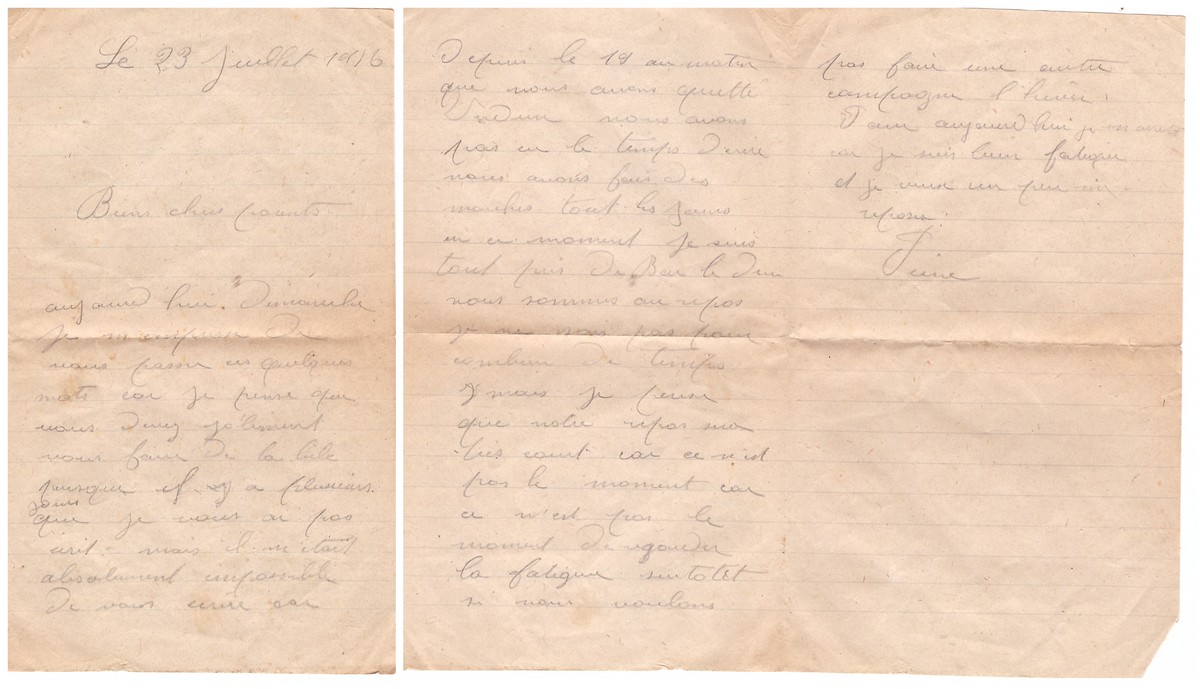 Le 23 Juillet 1916
Biens chers parents
aujourd hui. Dimanche
je m'empresse de
vous passer ces quelques
mots car je pense que
vous devez joliment
vous faire de la bile
puisque il y a plusieurs
jours
que je vous ai pas
écrit - mais il m'était
absolument impossible
de vous ecrire car
Depuis le 19 au matin
que nous avons quitté
Verdun nous avons
pas eu le temps d'ecrire
nous avons fais des
marches tout les jours
en ce moment je suis
tout pres de Bar le duc
nous sommes au repos
je ne sais pas pour
combien de temps
mais je pense
que notre repos sera
très court car ce n'est
pas le moment car
ce n'est pas le
moment de regarder
la fatigue surtotêt
si nous voulons
pas faire une autre
campagne l'hiver.
Pour aujourd hui je m'arrete
car je suis bien fatigué
et je veux un peu me
reposer.